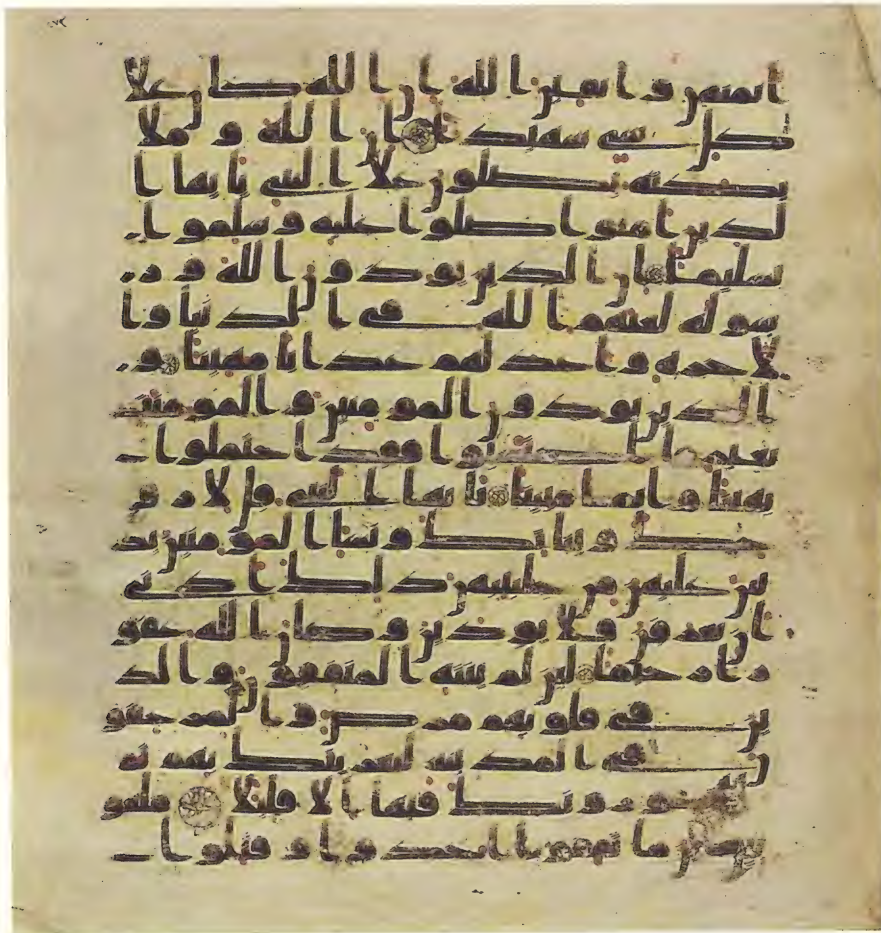 ايمنهن واتقين الله ان الله كان علا
كل شي شهيدا ان الله وملا
ئكته يصلون علا النبي يايها ا
لذين امنوا صلوا عليه وسلموا
تسليما ان الذين يوذون الله ور
سوله لعنهم الله في الدنيا وا
لاخره واعد لهم عذابا مهينا و
الذين يوذون المومنين والمومنت
بغير ما اكتسبوا فقد احتملوا
بهتنا واثما مبينا يايها النبي قل لازو
جك وبناتك ونسا المومنين يد
نين عليهن من جلبيبهن ذلك ادنى
ان يعرفن فلا يوذين وكان الله غفو
را رحيما لين لم ينته المنفقون والذ
ين في قلوبهم مرض والمرجفو
ن في المدينه لنغرينك بهم ثم
لا يجاورونك فيها الا قليلا ملعو
نين اينما ثقفوا اخذوا وقتلوا